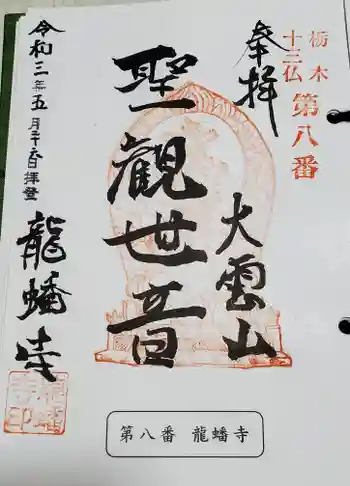 栃木
十三仏
第八番
奉拝
大雲山
聖觀世音
令和三年五月
拝登
龍蟠寺
龍蟠寺印
第八番 龍蟠寺